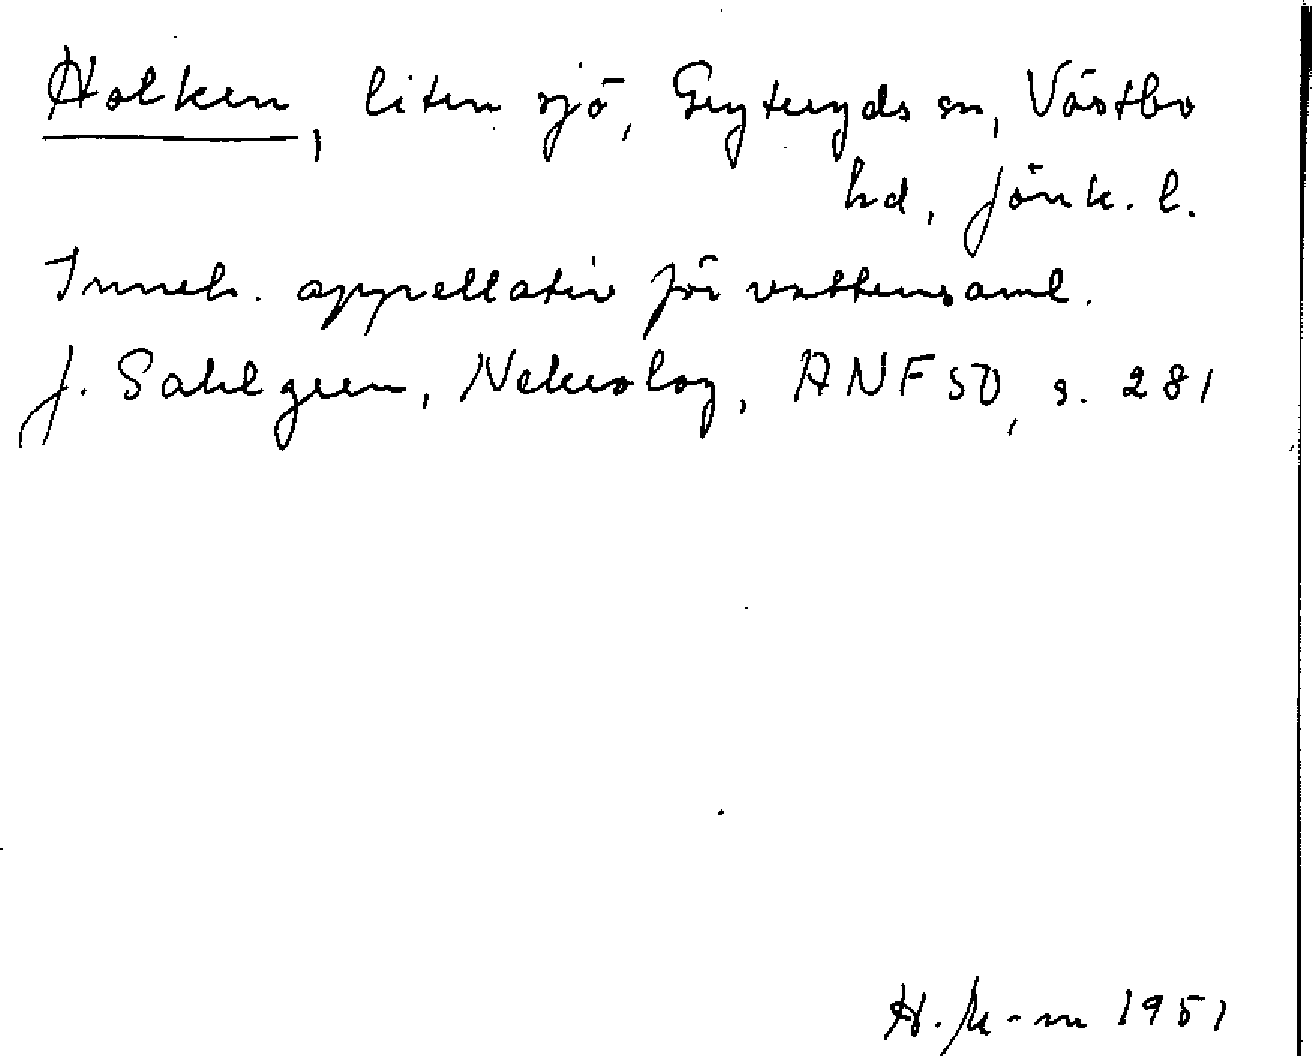 Holken, liten sjö, Gryteryds sn, Västbo
hd, Jönk. l.
Inneh. appellativ för vattensaml.
J. Sahlgren, Nekrolog, ANF 50, s. 281
H. 1951